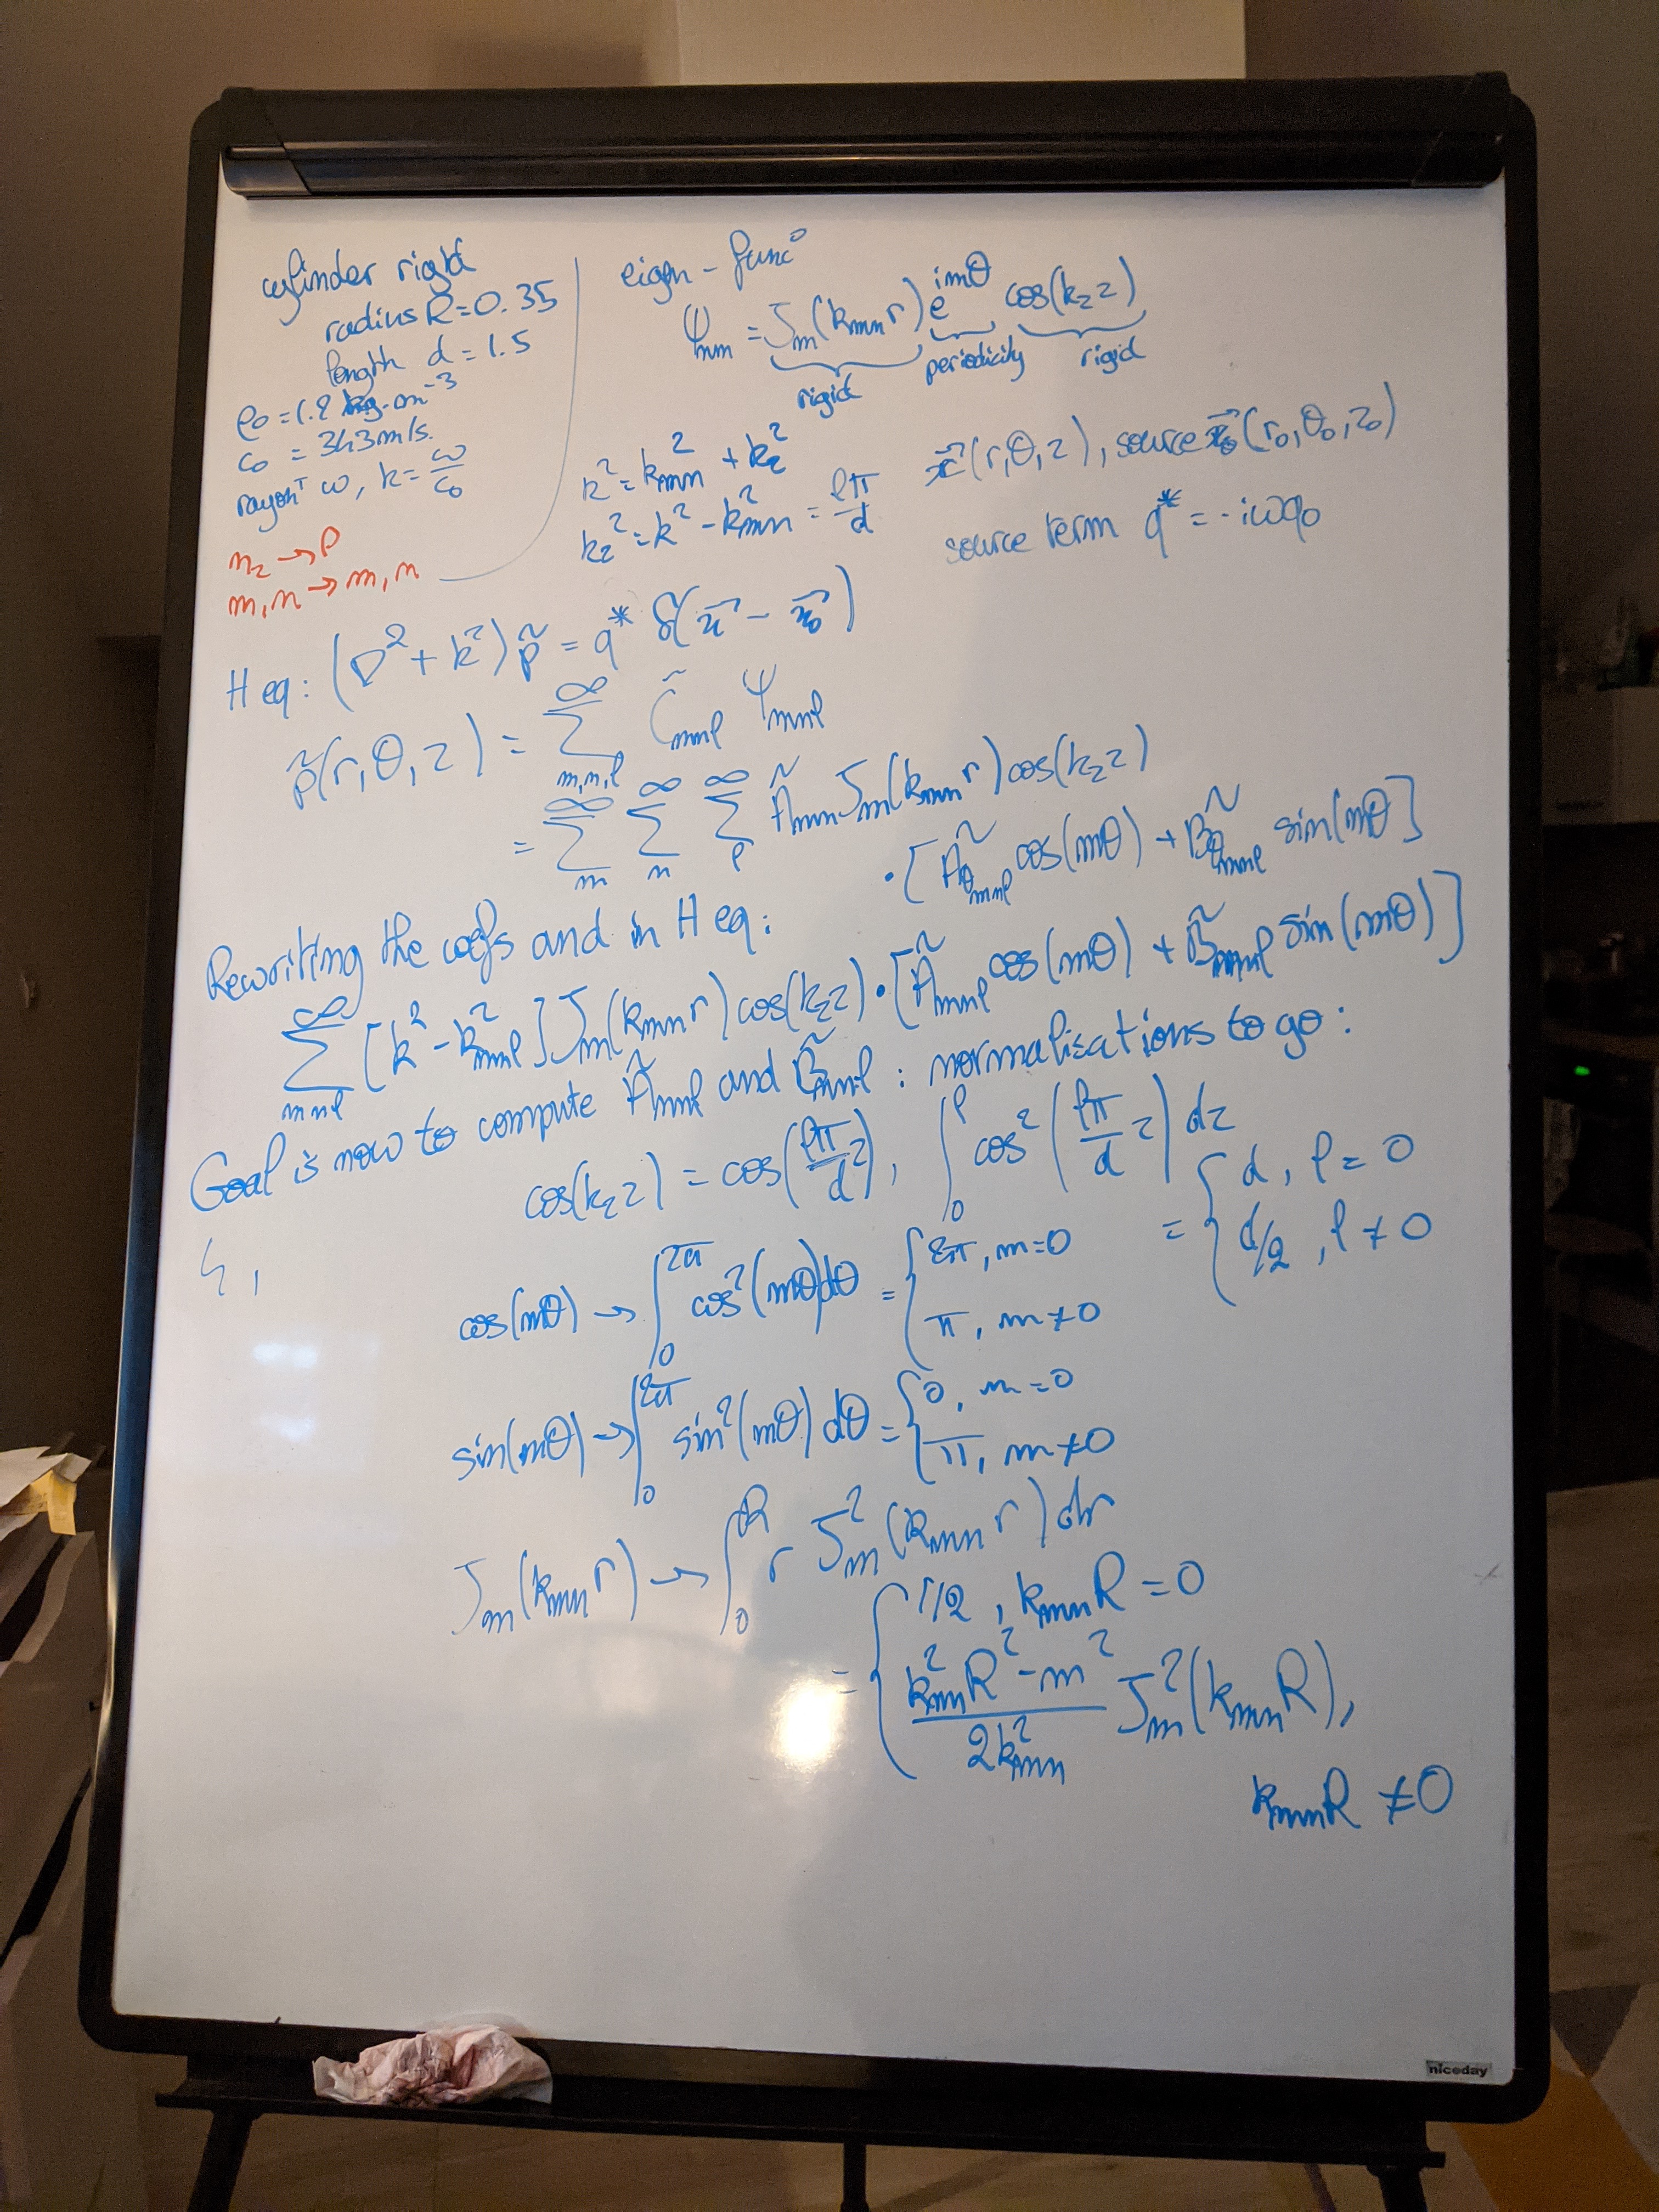 cylinder rigid
radius R=0.35
length d = 1.5
ρ₀ = 1.2 kg.m⁻³
c₀ = 343m/s.
rayonᵗ ω, k = ω/c₀
n_z → l
m,n → m,n
eigen-func°
ψ_mnl = J_m(k_mn r) e^{imθ} cos(k_z z)
rigid periodicity rigid
k² = k_mn² + k_z²
k_z² = k² - k_mn² = lπ/d
x⃗(r,θ,z), source x⃗₀(r₀,θ₀,z₀)
source term q* = -iωq₀
H eq: (∇² + k²)p̃ = q* δ(x⃗ - x⃗₀)
p̃(r,θ,z) = ∑_{m,n,l}^∞ C̃_mnl ψ_mnl
= ∑_m^∞ ∑_n^∞ ∑_l^∞ Ã_mn J_m(k_mn r) cos(k_z z)
· [Ã_θmnl cos(mθ) + B̃_θmnl sin(mθ)]
Rewriting the coefs and in H eq:
∑_{mnl}^∞ [k² - k²_mnl] J_m(k_mn r) cos(k_z z) · [Ã_mnl cos(mθ) + B̃_mnl sin(mθ)]
Goal is now to compute Ã_mnl and B̃_mnl : normalisations to go :
cos(k_z z) = cos(lπ/d z), ∫₀^l cos²(lπ/d z) dz
= { d, l = 0
d/2, l ≠ 0
cos(mθ) → ∫₀^{2π} cos²(mθ)dθ = { 2π, m=0
π, m≠0
sin(mθ) → ∫₀^{2π} sin²(mθ) dθ = { 0, m=0
π, m≠0
J_m(k_mn r) → ∫₀^R r J_m²(k_mn r) dr
= { r/2, k_mn R = 0
(k_mn² R² - m²)/(2k_mn²) J_m²(k_mn R),
k_mn R ≠ 0
niceday